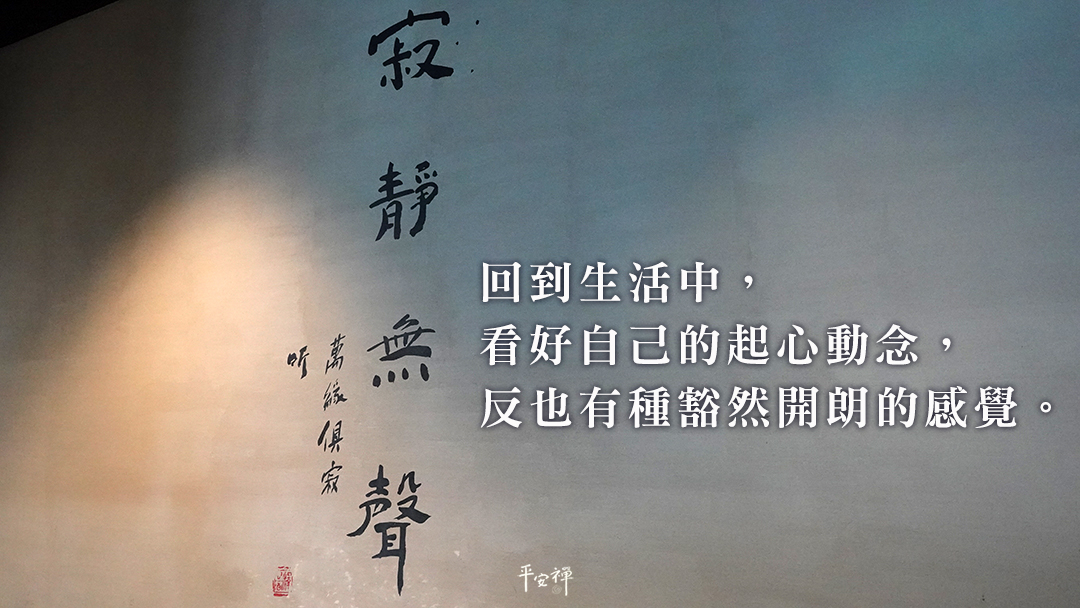 寂靜無聲
萬緣俱寂
听
回到生活中，
看好自己的起心動念，
反也有種豁然開朗的感覺。
平安禪